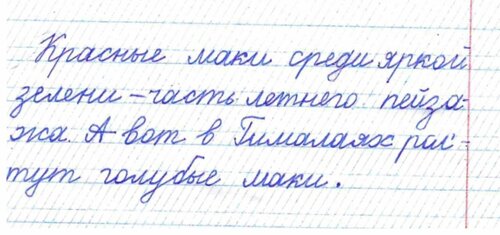 Красные маки среди яркой
зелени – часть летнего пейза-
жа. А вот в Гималаях рас-
тут голубые маки.